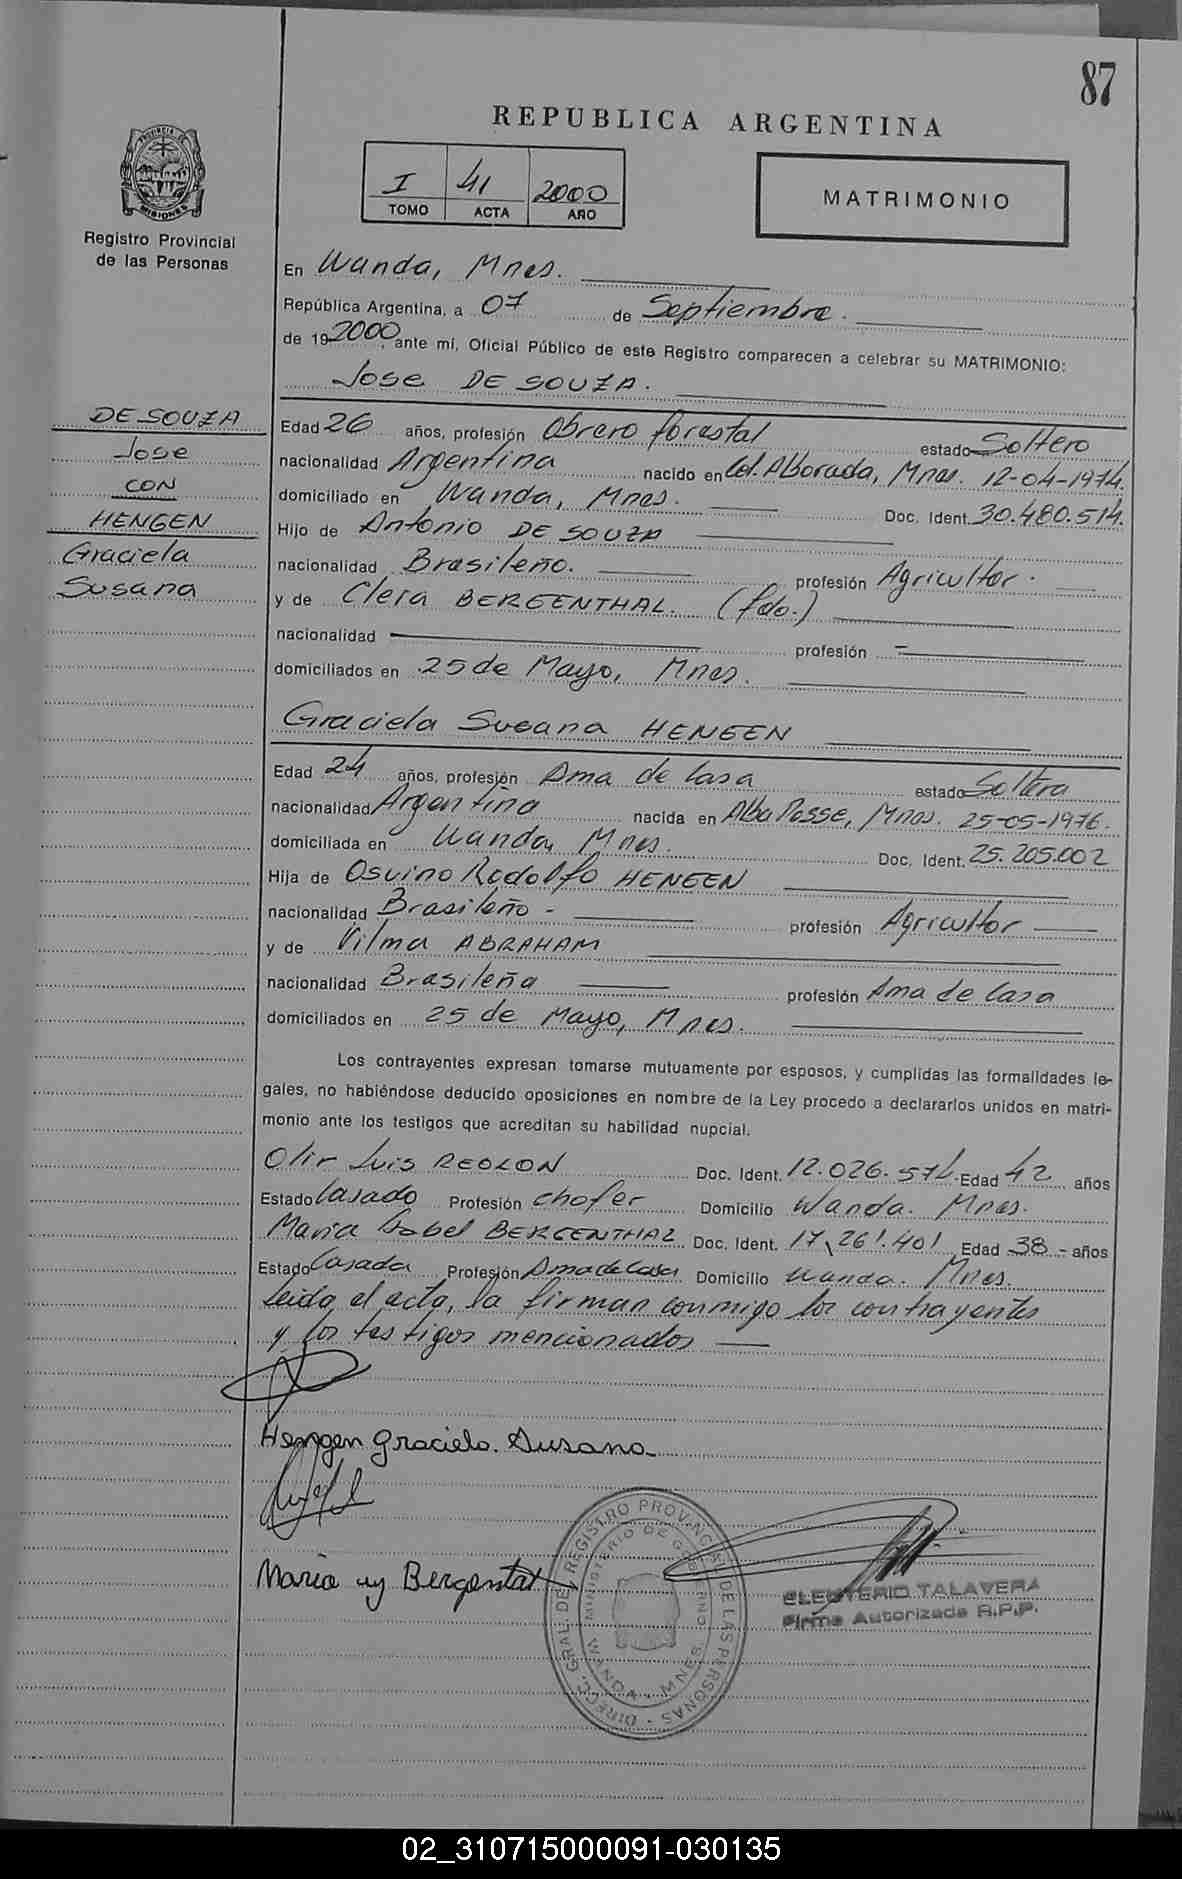 87
REPUBLICA ARGENTINA
PROVINCIA DE MISIONES
Registro Provincial
de las Personas
I 41 2000
TOMO ACTA AÑO
MATRIMONIO
En Wanda, Mnes.
República Argentina, a 07 de Septiembre.
de 192000, ante mí, Oficial Público de este Registro comparecen a celebrar su MATRIMONIO:
Jose DE SOUZA.
DE SOUZA
Jose
CON
HENGEN
Graciela
Susana
Edad 26 años, profesión Obrero forestal estado Soltero
nacionalidad Argentina nacido en Col. Alborada, Mnes. 12-04-1974.
domiciliado en Wanda, Mnes. Doc. Ident. 30.480.514.
Hijo de Antonio DE SOUZA
nacionalidad Brasileño. profesión Agricultor.
y de Clera BERGENTHAL. (fdo.)
nacionalidad profesión
domiciliados en 25 de Mayo, Mnes.
Graciela Susana HENGEN
Edad 24 años, profesión Ama de Casa estado Soltera
nacionalidad Argentina nacida en Alba Posse, Mnes. 25-05-1976.
domiciliada en Wanda, Mnes. Doc. Ident. 25.205.002
Hija de Osvino Rodolfo HENGEN
nacionalidad Brasileño - profesión Agricultor
y de Vilma ABRAHAM
nacionalidad Brasileña profesión Ama de Casa
domiciliados en 25 de Mayo, Mnes.
Los contrayentes expresan tomarse mutuamente por esposos, y cumplidas las formalidades le-
gales, no habiéndose deducido oposiciones en nombre de la Ley procedo a declararlos unidos en matri-
monio ante los testigos que acreditan su habilidad nupcial.
Olir Luis REOLON Doc. Ident. 12.026.571. Edad 42 años
Estado Casado Profesión Chofer Domicilio Wanda. Mnes.
Maria Isabel BERGENTHAL Doc. Ident. 17.261.401 Edad 38 - años
Estado Casada Profesión Ama de Casa Domicilio Wanda. Mnes.
Leida el acta, la firman conmigo los contrayentes
y los testigos mencionados
Hengen Graciela. Susana
Maria Bergental
DIREC. GRAL. DEL REGISTRO PROVINCIAL DE LAS PERSONAS
MINISTERIO DE GOBIERNO
WANDA - MNES.
ELEUTERIO TALAVERA
Firma Autorizada R.P.P.
02_310715000091-030135